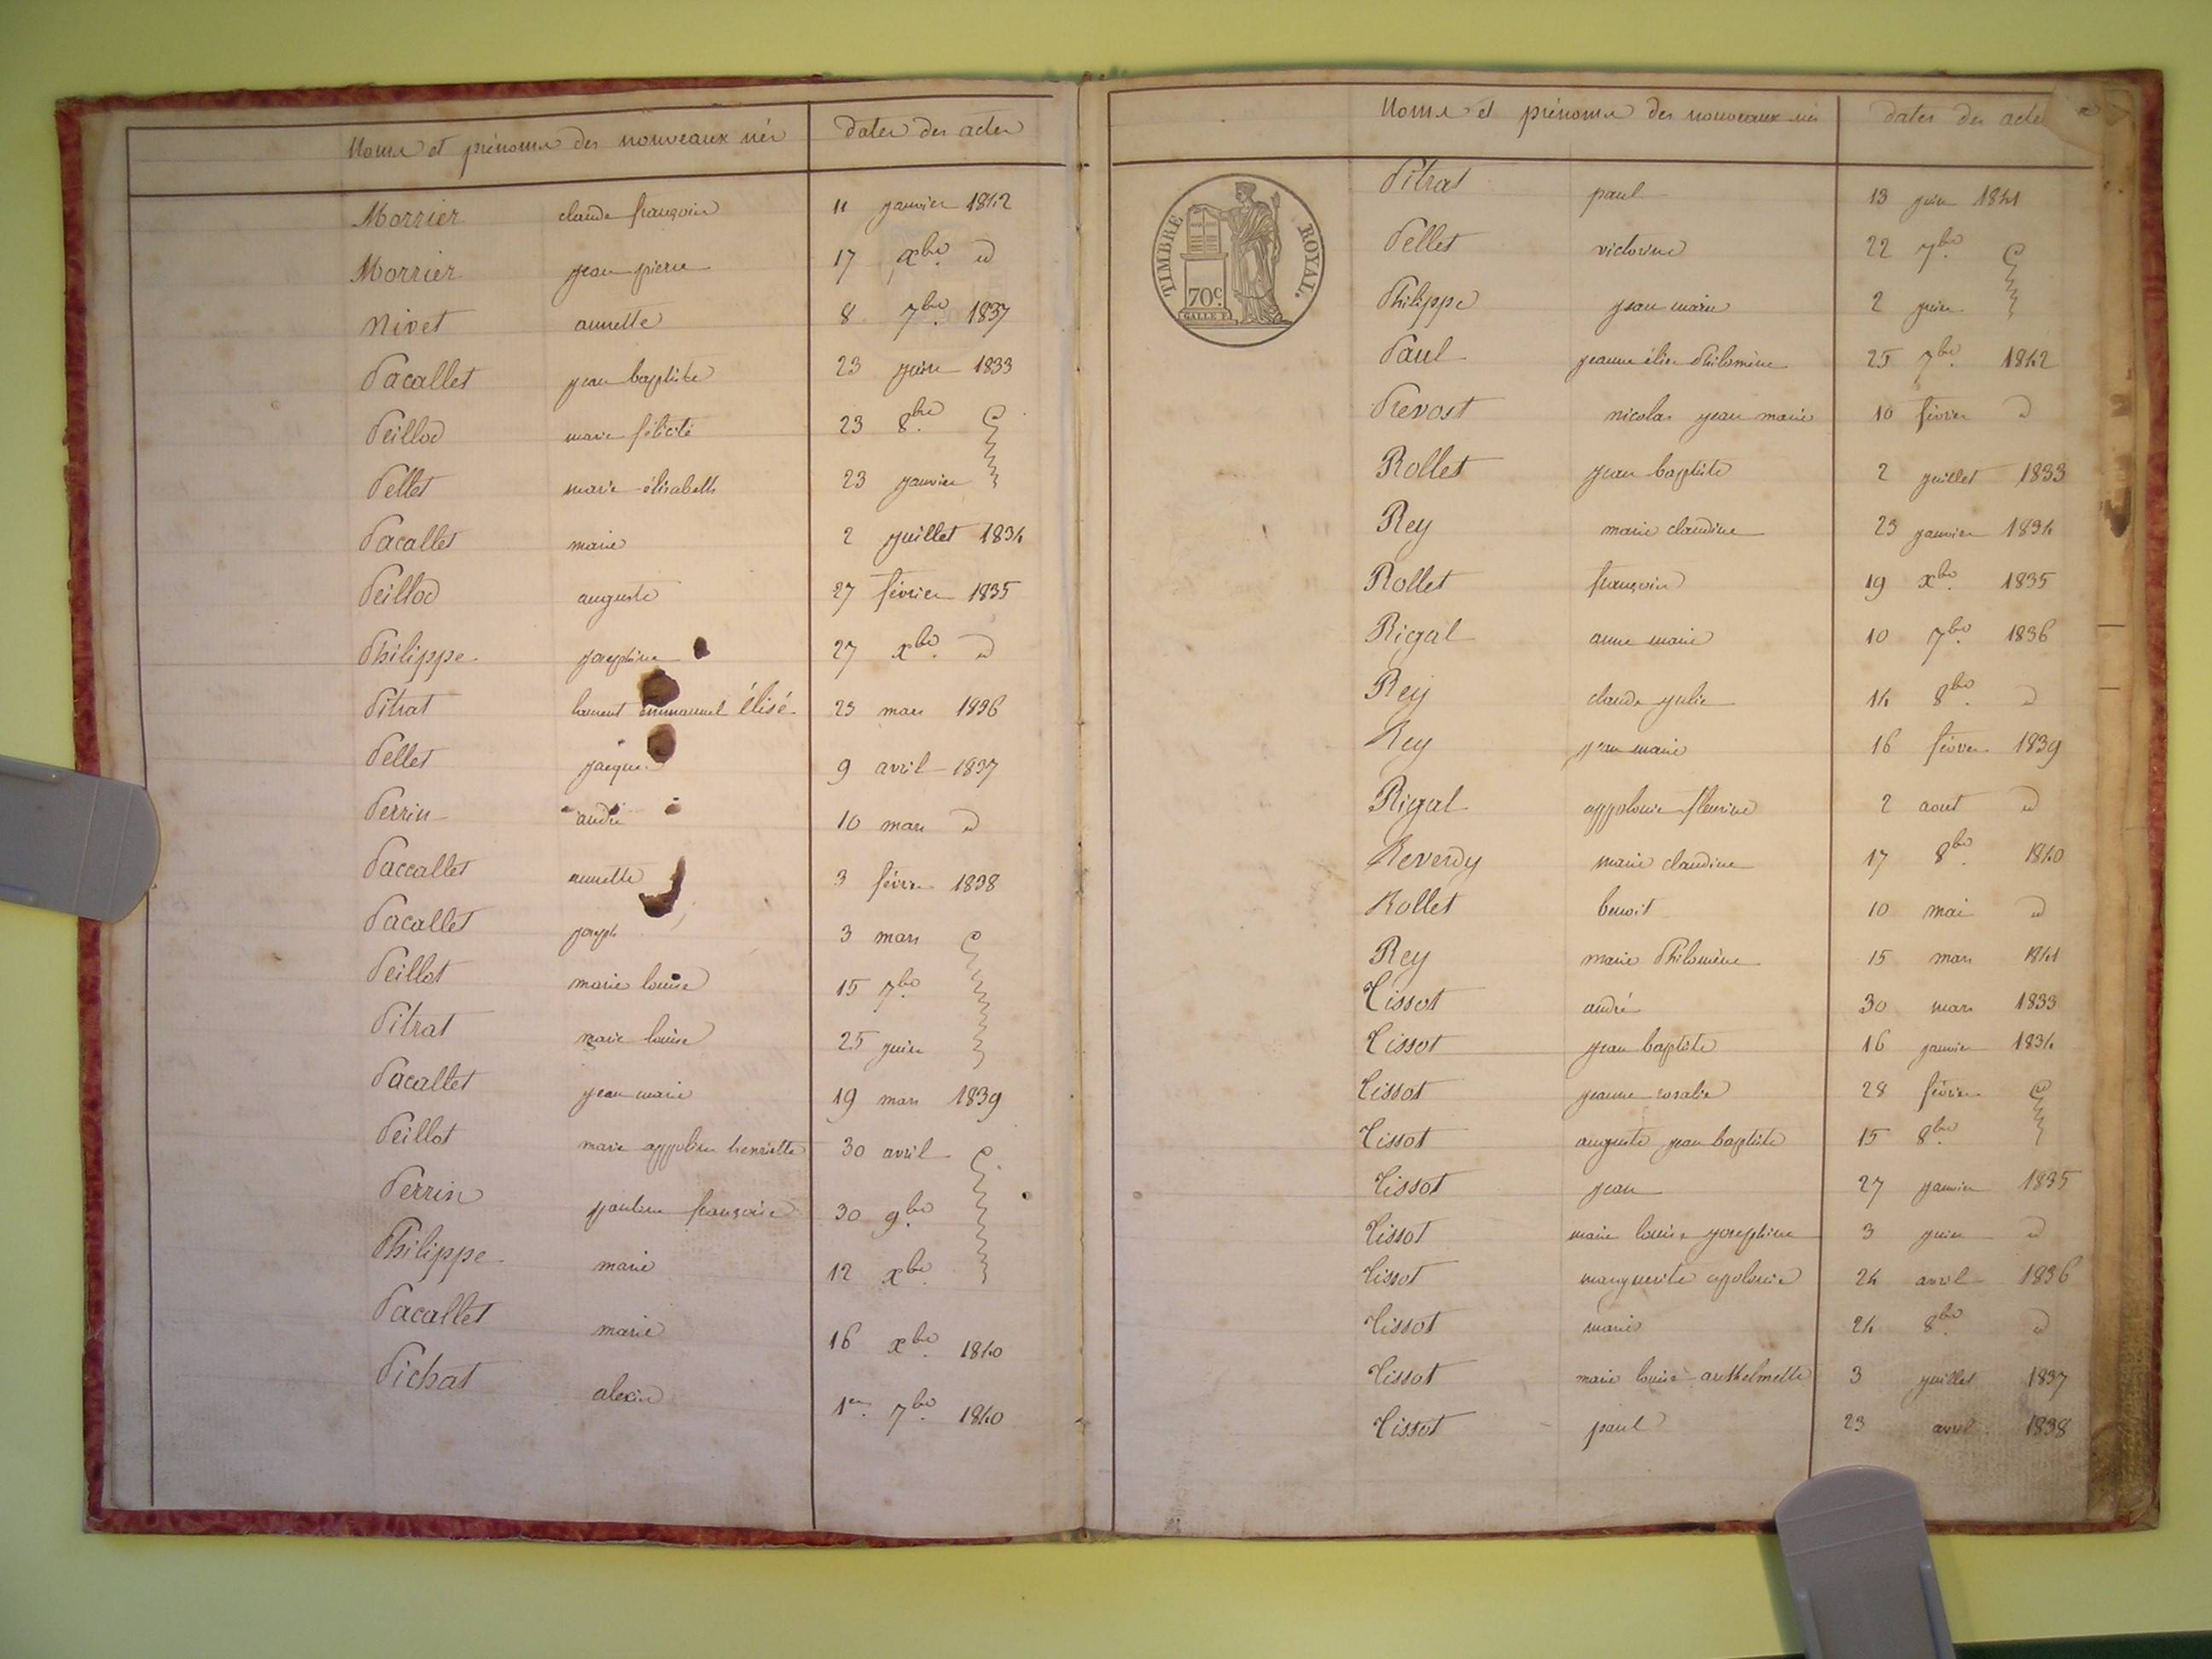 Noms et prénoms des nouveaux nés dates des actes
Morrier claude françois 11 janvier 1842
Morrier jean pierre 17 xbre. id
Nivet annette 8 7bre. 1837
Pacallet jean baptiste 23 juin 1833
Peillod marie félicité 23 8bre.
Pellet marie élisabeth 23 janvier
Pacallet marie 2 juillet 1834
Peillod auguste 27 février 1835
Philippe josephine 27 xbre. id
Pitrat laurent emmanuel élisé 23 mars 1836
Pellet jacques 9 avril 1837
Perrin andré 10 mars id
Paccallet annette 3 février 1838
Pacallet joseph 3 mars
Peillot marie louise 15 7bre.
Pitrat marie louise 25 juin
Pacallet jean marie 19 mars 1839
Peillot marie appoline henriette 30 avril
Perrin pauline françoise 30 9bre.
Philippe marie 12 xbre.
Pacallet marie 16 xbre. 1840
Pichat alexis 1er. 7bre. 1840
Noms et prénoms des nouveaux nés dates des actes
TIMBRE ROYAL.
70c.
GALLE F.
Pitrat paul 13 juin 1841
Pellet victorine 22 7bre.
Philippe jean marie 2 juin
Paul jeanne élise Philomène 25 7bre. 1842
Prevost nicolas jean marie 10 février id
Rollet jean baptiste 2 juillet 1833
Rey marie claudine 23 janvier 1834
Rollet françois 19 xbre. 1835
Rigal anne marie 10 7bre. 1836
Rey claude julie 14 8bre. id
Rey jean marie 16 février 1839
Rigal appolonie fleurine 2 aout id
Reverdy marie claudine 17 8bre. 1840
Rollet benoit 10 mai id
Rey marie Philomène 15 mars 1841
Tissot andré 30 mars 1833
Tissot jean baptiste 16 janvier 1834
Tissot jeanne rosalie 28 février
Tissot auguste jean baptiste 15 8bre.
Tissot jean 27 janvier 1835
Tissot marie louise josephine 3 juin id
Tissot marguerite appolonie 24 avril 1836
Tissot marie 24 8bre. id
Tissot marie louise anthelmette 3 juillet 1837
Tissot paul 23 avril 1838